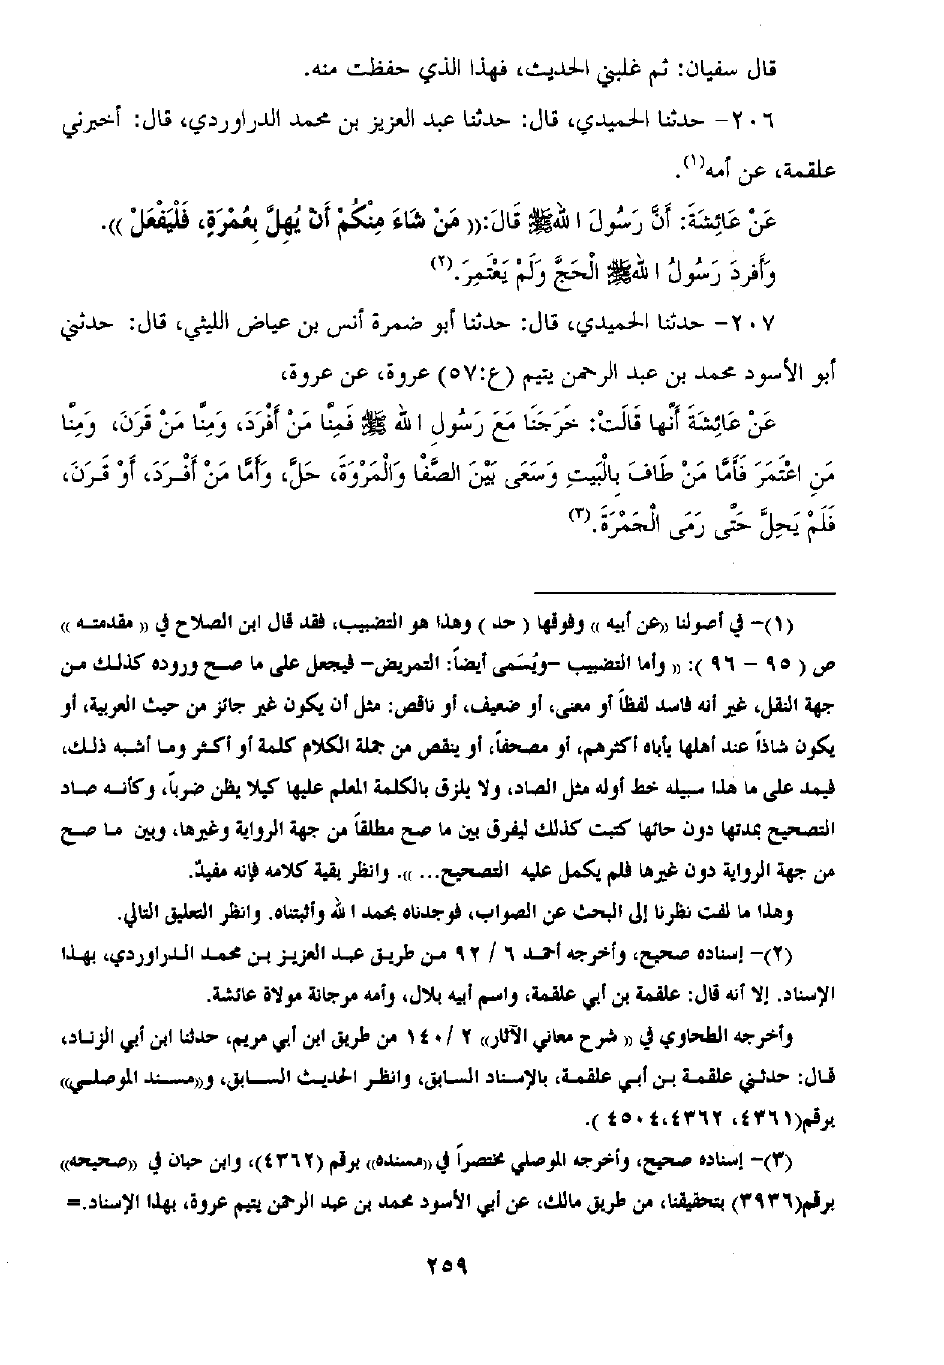 قال سفيان: ثم غلبني الحديث، فهذا الذي حفظت منه.
٢٠٦- حدثنا الحميدي، قال: حدثنا عبد العزيز بن محمد الدراوردي، قال: أخبرني
علقمة، عن أمه(١).
عَنْ عَائِشَةَ: أَنَّ رَسُولَ اللهﷺ قَالَ:(( مَنْ شَاءَ مِنْكُمْ أَنْ يُهِلَّ بِعُمْرَةٍ، فَلْيَفْعَلْ )).
وَأَفردَ رَسُولُ اللهﷺ الْحَجَّ وَلَمْ يَعْتَمِرَ.(٢)
٢٠٧- حدثنا الحميدي، قال: حدثنا أبو ضمرة أنس بن عياض الليثي، قال: حدثني
أبو الأسود محمد بن عبد الرحمن يتيم (ع:٥٧) عروة، عن عروة،
عَنْ عَائِشَةَ أَنَّها قَالَتْ: خَرَجَنَا مَعَ رَسُولِ الله ﷺ فَمِنَّا مَنْ أَفْرَدَ، وَمِنَّا مَنْ قَرَنَ، وَمِنَّا
مَنِ اعْتَمَرَ فَأَمَّا مَنْ طَافَ بِالْبَيتِ وَسَعَى بَيْنَ الصَّفَا وَالْمَرْوَةَ، حَلَّ، وَأَمَّا مَنْ أَفْرَدَ، أَوْ قَرَنَ،
فَلَمْ يَحِلَّ حَتَّى رَمَى الْجَمْرَةَ.(٣)
(١)- في أصولنا ((عن أبيه )) وفوقها ( حد ) وهذا هو التضبيب، فقد قال ابن الصلاح في (( مقدمته ))
ص ( ٩٥ - ٩٦ ): (( وأما التضبيب -ويُسَمى أيضاً: التمريض- فيجعل على ما صح وروده كذلك من
جهة النقل، غير أنه فاسد لفظاً أو معنى، أو ضعيف، أو ناقص: مثل أن يكون غير جائز من حيث العربية، أو
يكون شاذاً عند أهلها يأباه أكثرهم، أو مصحفاً، أو ينقص من جملة الكلام كلمة أو أكثر وما أشبه ذلك،
فيمد على ما هذا سبيله خط أوله مثل الصاد، ولا يلزق بالكلمة المعلم عليها كيلا يظن ضرباً، وكأنه صاد
التصحيح بمدتها دون حائها كتبت كذلك ليفرق بين ما صح مطلقاً من جهة الرواية وغيرها، وبين ما صح
من جهة الرواية دون غيرها فلم يكمل عليه التصحيح... )). وانظر بقية كلامه فإنه مفيدٌ.
وهذا ما لفت نظرنا إلى البحث عن الصواب، فوجدناه بحمد الله وأثبتناه. وانظر التعليق التالي.
(٢)- إسناده صحيح، وأخرجه أحمد ٦ / ٩٢ من طريق عبد العزيز بن محمد الدراوردي، بهذا
الإسناد. إلا أنه قال: علقمة بن أبي علقمة، واسم أبيه بلال، وأمه مرجانة مولاة عائشة.
وأخرجه الطحاوي في (( شرح معاني الآثار)) ٢ /١٤٠ من طريق ابن أبي مريم، حدثنا ابن أبي الزناد،
قال: حدثني علقمة بن أبي علقمة، بالإسناد السابق، وانظر الحديث السابق، و((مسند الموصلي))
برقم(٤٣٦١، ٤٣٦٢،٤٥٠٤ ).
(٣)- إسناده صحيح، وأخرجه الموصلي مختصراً في ((مسنده)) برقم (٤٣٦٢)، وابن حبان في ((صحيحه))
برقم(٣٩٣٦) بتحقيقنا، من طريق مالك، عن أبي الأسود محمد بن عبد الرحمن يتيم عروة، بهذا الإسناد.=
٢٥٩